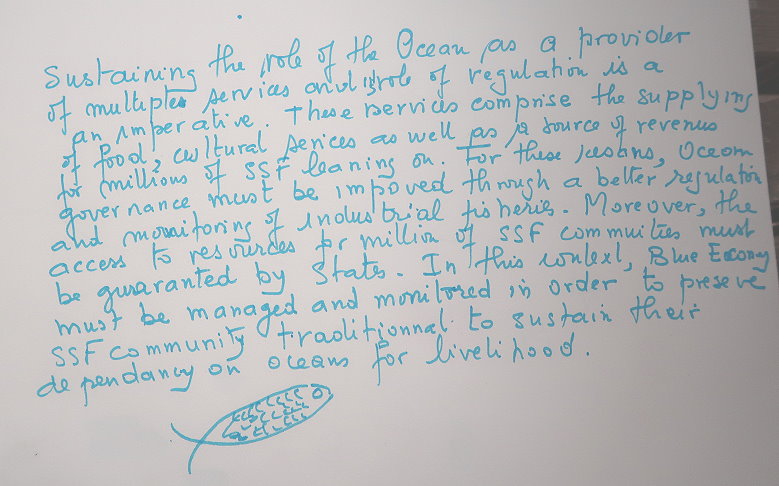 Sustaining the role of the Ocean as a provider
of multiples services and is role of regulation is a
an imperative. These services comprise the supplying
of food, cultural serices as well as a source of revenus
for millions of SSF leaning on. For these reasons, Ocean
governance must be impoved through a better regulation
and monitoring of industrial fisheries. Moreover, the
access to resources for million of SSF commuities must
be guaranted by States. In this context, Blue Economy
must be managed and monitored in order to preseve
SSF community traditionnal to sustain their
dependancy on oceans for livelihood.